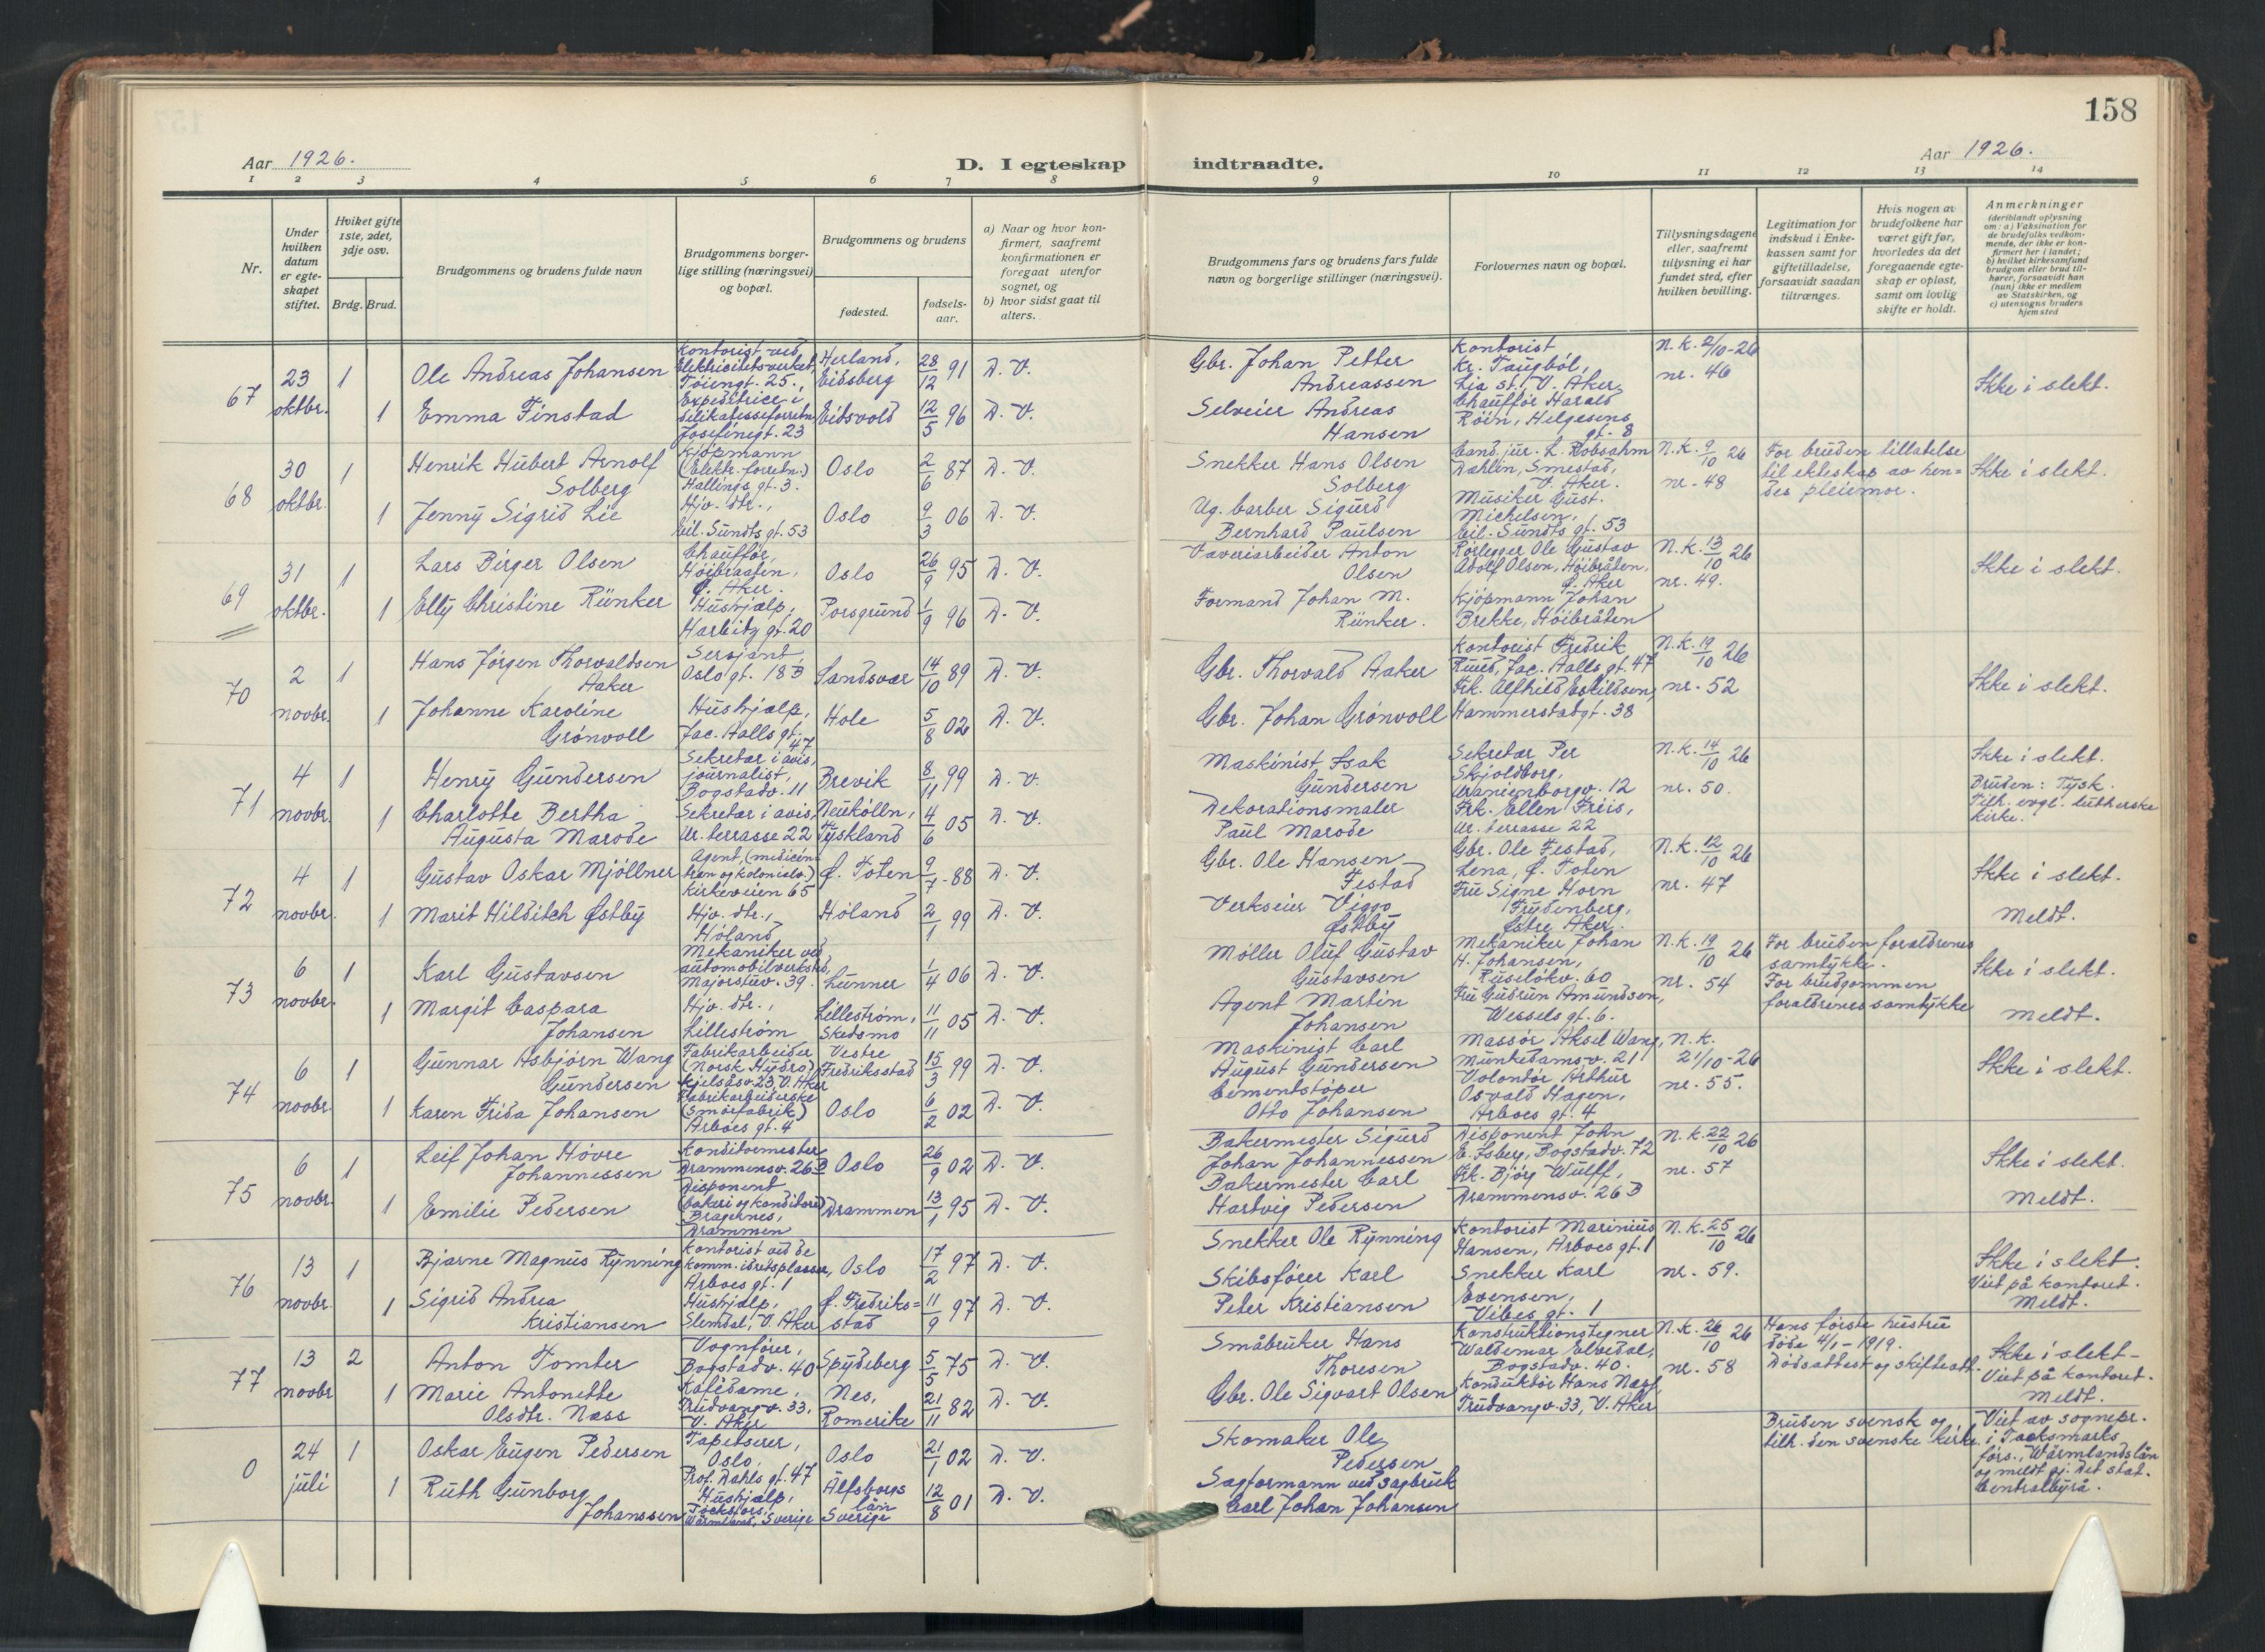 158
Aar 1926.
D. I egteskap
indtraadte.
Aar 1926.
1 2 3 4 5 6 7 8 9 10 11 12 13 14
Nr.
Under hvilken datum er egteskapet stiftet.
Hvilket gifte 1ste, 2det, 3dje osv.
Brdg. Brud.
Brudgommens og brudens fulde navn
Brudgommens borgerlige stilling (næringsvei) og bopæl.
Brudgommens og brudens
fødested.
fødselsaar.
a) Naar og hvor konfirmert, saafremt konfirmationen er foregaat utenfor sognet, og
b) hvor sidst gaat til alters.
Brudgommens fars og brudens fars fulde navn og borgerlige stillinger (næringsvei).
Forlovernes navn og bopæl.
Tillysningsdagene eller, saafremt tillysning ei har fundet sted, efter hvilken bevilling.
Legitimation for indskud i Enkekassen samt for giftetilladelse, forsaavidt saadan tiltrænges.
Hvis nogen av brudefolkene har været gift før, hvorledes da det foregaaende egteskap er opløst, samt om lovlig skifte er holdt.
Anmerkninger (deriblandt oplysning om: a) Vaksination for de brudefolks vedkommende, der ikke er konfirmert her i landet; b) hvilket kirkesamfund brudgom eller brud tilhører, forsaavidt han (hun) ikke er medlem av Statskirken, og c) utensogns bruders hjemsted
67
23 oktbr.
1
Ole Andreas Johansen
Kontorist ved Elektricitetsverket, Töiengt. 25.
Herland, Eidsberg
28/12 91
D. V.
Gbr. Johan Petter Andreassen
Kontorist Kr. Taugböl, Lia st., V. Aker
N.K. 2/10-26 nr. 46
Ikke i slekt.
1
Emma Finstad
Expeditrice i delikatesseforretn., Josefinegt. 23
Eidsvold
12/5 96
D. V.
Selveier Andreas Hansen
Chauffør Harald Röin, Helgesens gt. 8
68
30 oktbr.
1
Henrik Hubert Arnolf Solberg
Kjöpmann (Elektr. forretn.) Hallings gt. 3.
Oslo
2/6 87
D. V.
Snekker Hans Olsen Solberg
Cand. jur. L. Robsahm Dahlén, Smestad, V. Aker.
N.K. 9/10 26 nr. 48
For bruden tillatelse til ekteskap av hendes pleiemor.
Ikke i slekt.
1
Jenny Sigrid Lie
Hjv. dtr., Eil. Sundts gt. 53
Oslo
9/3 06
D. V.
Ug. barber Sigurd Bernhard Paulsen
Musiker Gust. Michelsen, Eil. Sundts gt. 53
69
31 oktbr.
1
Lars Birger Olsen
Chauffør, Höibraaten, Ø. Aker.
Oslo
26/9 95
D. V.
Vaveriarbeider Anton Olsen
Rörlegger Ole Gustav Adolf Olsen, Höibråten, Ø. Aker
N.K. 13/10 26 nr. 49.
Ikke i slekt.
1
Elly Christine Rünker
Hushjælp, Harbitz gt. 20
Porsgrund
1/9 96
D. V.
Formand Johan M. Rünker.
Kjöpmann Johan Brekke, Höibråten
70
2 novbr.
1
Hans Jörgen Thorvaldsen Aaker
Sersjant, Oslo gt. 18 B
Sandsvær
14/10 89
D. V.
Gbr. Thorvald Aaker
Kontorist Fredrik Ruud, Jac. Aalls gt. 47
N.K. 19/10 26 nr. 52
Ikke i slekt.
1
Johanne Karoline Grönvoll
Hushjælp, Jac. Aalls gt. 47
Hole
5/8 02
D. V.
Gbr. Johan Grönvoll
Frk. Alfhild Eskildsen, Hammerstadgt. 38
71
4 novbr.
1
Henry Gundersen
Sekretær i avis, journalist, Bogstadv. 11
Brevik
8/11 99
D. V.
Maskinist Isak Gundersen
Sekretær Per Skjoldborg, Uranienborgv. 12
N.K. 14/10 26 nr. 50.
Ikke i slekt.
1
Charlotte Bertha Augusta Marode
Sekretær i avis, Ur. terrasse 22
Neukölln, Tyskland
4/6 05
D. V.
Dekorationsmaler Paul Marode
Frk. Ellen Friis, Ur. terrasse 22
Bruden: Tysk. Tilh. evgl. lutherske kirke.
72
4 novbr.
1
Gustav Oskar Mjöllner
Agent, (medicintran og kolonialv.) Kirkeveien 65
Ø. Toten
9/7-88
D. V.
Gbr. Ole Hansen Festad
Gbr. Ole Festad, Lena, Ø. Toten
N.K. 12/10 26 nr. 47
Ikke i slekt.
1
Marit Hilditch Østby
Hjv. dtr., Höland
Höland
2/1 99
D. V.
Verkseier Viggo Østby
Fru Signe Horn Frydenberg, Østre Aker.
Meldt.
73
6 novbr.
1
Karl Gustavsen
Mekaniker ved automobilverksted, Majorstuv. 39.
Lunner
1/4 06
D. V.
Möller Oluf Gustav Gustavsen
Mekaniker Johan H. Johansen, Ruselökv. 60
N.K. 19/10 26 nr. 54
For bruden forældrenes samtykke.
Ikke i slekt.
1
Margit Caspara Johansen
Hjv. dtr., Lilleström
Lilleström, Skedsmo
11/11 05
D. V.
Agent Martin Johansen
Fru Gudrun Amundsen, Wessels gt. 6.
For brudgommen forældrenes samtykke
Meldt.
74
6 novbr.
1
Gunnar Asbjörn Wang Gundersen
Fabrikarbeider (Norsk Hydro) Kjelsåsv. 23, V. Aker
Vestre Fredriksstad
15/3 99
D. V.
Maskinist Carl August Gundersen
Massör Aksel Wang, Munkedamsv. 21
N.K. 21/10-26 nr. 55.
Ikke i slekt.
1
Karen Frida Johansen
Fabrikarbeiderske (Smörfabrik) Arboes gt. 4
Oslo
6/2 02
D. V.
Cementstöper Otto Johansen
Volontör Arthur Osvald Hagen, Arboes gt. 4
75
6 novbr.
1
Leif Johan Hövre Johannessen
Konditormester Drammensv. 26 B
Oslo
26/9 02
D. V.
Bakermester Sigurd Johan Johannessen
Disponent John E. Isberg, Bogstadv. 72
N.K. 22/10 26 nr. 57
Ikke i slekt.
1
Emilie Pedersen
Disponent (bakeri og konditori) Bragernes, Drammen
Drammen
13/1 95
D. V.
Bakermester Carl Hartvig Pedersen
Frk. Björg Wulff, Drammensv. 26 B
Meldt.
76
13 novbr.
1
Bjarne Magnus Rynning
Kontorist ved de komm. idrætsplasser, Arboes gt. 1
Oslo
17/2 97
D. V.
Snekker Ole Rynning
Kontorist Marinius Hansen, Arboes gt. 1
N.K. 25/10 26 nr. 59.
Ikke i slekt.
1
Sigrid Andrea Kristiansen
Hushjælp, Slemdal, V. Aker
Ø. Fredriksstad
11/9 97
D. V.
Skibsförer Karl Peter Kristiansen
Snekker Karl Evensen, Vibes gt. 1
Viet på kontoret. Meldt.
77
13 novbr
2
Anton Tomter
Vognförer, Bogstadv. 40
Spydeberg
5/5 75
D. V.
Småbruker Hans Thoresen
Konstruktionstegner Waldemar Elvedal, Bogstadv. 40.
N.K. 26/10 26 nr. 58
Hans förste hustru döde 4/1-1919. Dödsattest og skifteatt.
Ikke i slekt-
1
Marie Antonette Olsdtr. Næss
Kafédame, Trudvangv. 33, V. Aker
Nes, Romerike
21/11 82
D. V.
Gbr. Ole Sigvart Olsen
Konduktör Hans Næss, Trudvangv. 33, V. Aker
Viet på kontoret. Meldt.
0
24 juli
1
Oskar Eugen Pedersen
Tapetserer, Oslo, Prof. Dahls gt. 47
Oslo
21/1 02
D. V.
Skomaker Ole Pedersen
Bruden svensk og tilh. den svenske kirke.
Viet av sognepr. i Tocksmarks förs., Wärmlands län og meldt gj. Det stat. Centralbyrå.
1
Ruth Gunborg Johanssen
Hushjælp, Töcksfors, Wärmland, Sverige
Älfsborgs län Sverige
12/8 01
D. V.
Sagformann ved sagbruk Carl Johan Johansen